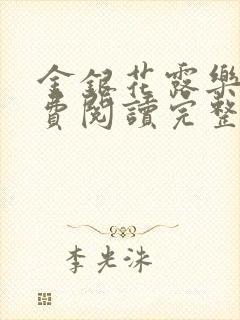 金銀花露樂
費閱讀完整
李光洙